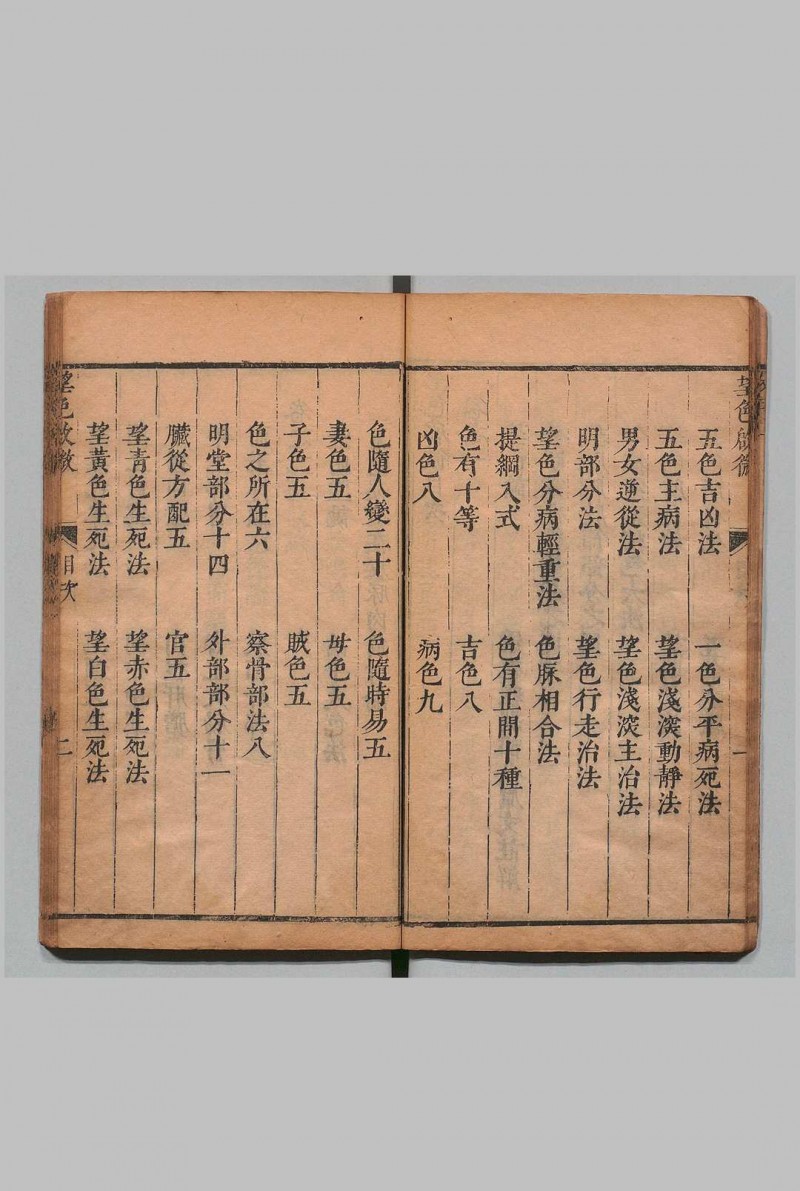 望色啟微
一
五色吉凶法　一色分平病死法
五色主病法　望色淺深動靜法
男女逆從法　望色淺深主治法
明部分法　望色行走治法
望色分病輕重法　色脉相合法
提綱入式　色有正間十種
色有十等　吉色八
凶色八　病色九
色隨人變二十　色隨時易五
妻色五　母色五
子色五　賊色五
色之所在六　察骨部法八
明堂部分十四　外部部分十一
臟從方配五　官五
望青色生死法　望赤色生死法
望黃色生死法　望白色生死法
望色啟微　目次　二